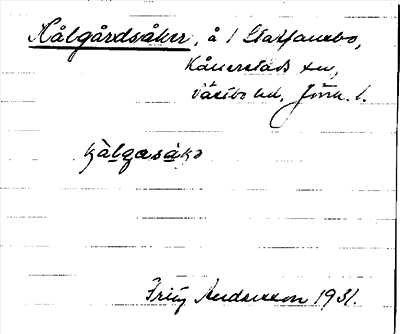 Kålgårdsåker, å / Staffansbo,
Kållerstads sn,
Västbo hd, Jönk. l.
kålgasåkə
Fritz Andersson 1931.